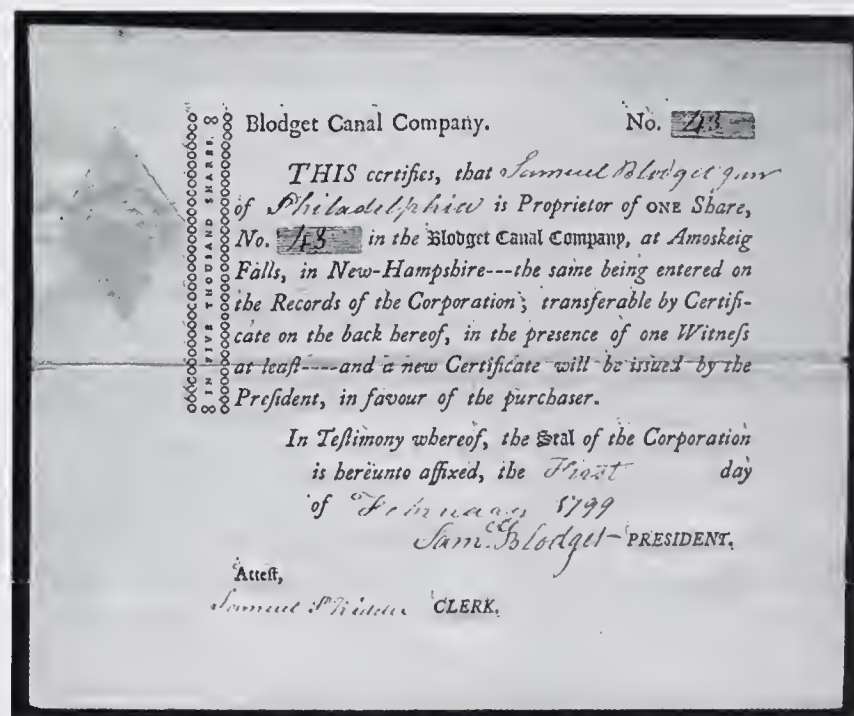 Blodget Canal Company. No. 43
THIS certifies, that Samuel Blodget junr
of Philadelphia is Proprietor of ONE Share,
No. 43 in the Blodget Canal Company, at Amoskeig
Falls, in New-Hampshire---the same being entered on
the Records of the Corporation; transferable by Certifi-
cate on the back hereof, in the presence of one Witneſs
at leaſt----and a new Certificate will be issued by the
Preſident, in favour of the purchaser.
IN FIVE THOUSAND SHARES.
In Teſtimony whereof, the Seal of the Corporation
is hereunto affixed, the First day
of February 1799
Saml. Blodget PRESIDENT.
Atteſt,
Samuel CLERK.